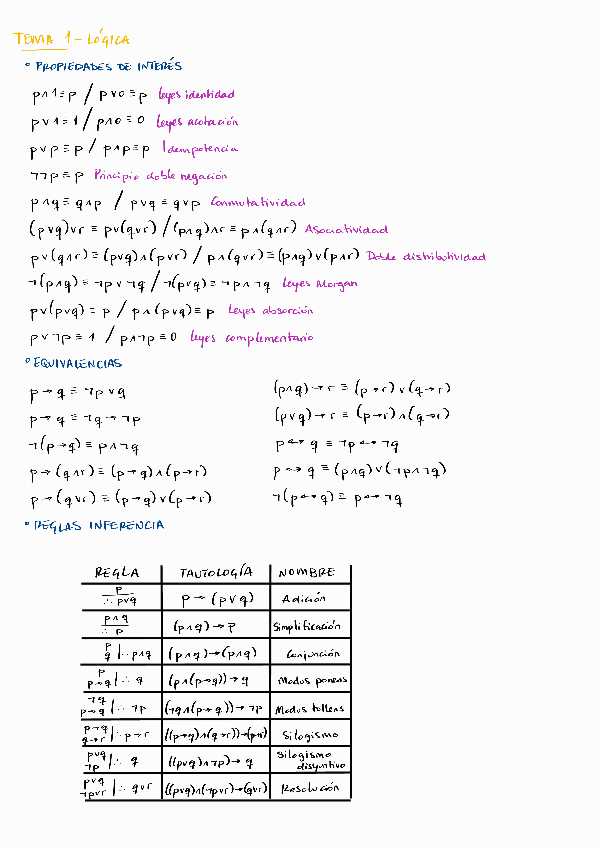 TEMA 1 - LÓGICA
° PROPIEDADES DE INTERÉS
p∧1≡p / p∨0≡p Leyes identidad
p∨1≡1 / p∧0≡0 Leyes acotación
p∨p≡p / p∧p≡p Idempotencia
¬¬p≡p Principio doble negación
p∧q≡q∧p / p∨q≡q∨p Conmutatividad
(p∨q)∨r ≡ p∨(q∨r) / (p∧q)∧r ≡ p∧(q∧r) Asociatividad
p∨(q∧r)≡(p∨q)∧(p∨r) / p∧(q∨r)≡(p∧q)∨(p∧r) Doble distributividad
¬(p∧q)≡¬p∨¬q / ¬(p∨q)≡¬p∧¬q Leyes Morgan
p∨(p∨q)≡p / p∧(p∨q)≡p Leyes absorción
p∨¬p≡1 / p∧¬p≡0 Leyes complementario
° EQUIVALENCIAS
p→q ≡ ¬p∨q (p∧q)→r ≡ (p→r)∨(q→r)
p→q ≡ ¬q→¬p (p∨q)→r ≡ (p→r)∧(q→r)
¬(p→q)≡p∧¬q p↔q ≡ ¬p↔¬q
p→(q∧r)≡(p→q)∧(p→r) p↔q ≡ (p∧q)∨(¬p∧¬q)
p→(q∨r)≡(p→q)∨(p→r) ¬(p↔q)≡ p↔¬q
° REGLAS INFERENCIA
REGLA TAUTOLOGÍA NOMBRE
p ∴ p∨q p→(p∨q) Adición
p∧q ∴ p (p∧q)→p Simplificación
p q ∴ p∧q (p∧q)→(p∧q) Conjunción
p p→q ∴ q (p∧(p→q))→q Modus ponens
¬q p→q ∴ ¬p (¬q∧(p→q))→¬p Modus tollens
p→q q→r ∴ p→r ((p→q)∧(q→r))→(p→r) Silogismo
p∨q ¬p ∴ q ((p∨q)∧¬p)→q Silogismo disyuntivo
p∨q ¬p∨r ∴ q∨r ((p∨q)∧(¬p∨r)→(q∨r) Resolución